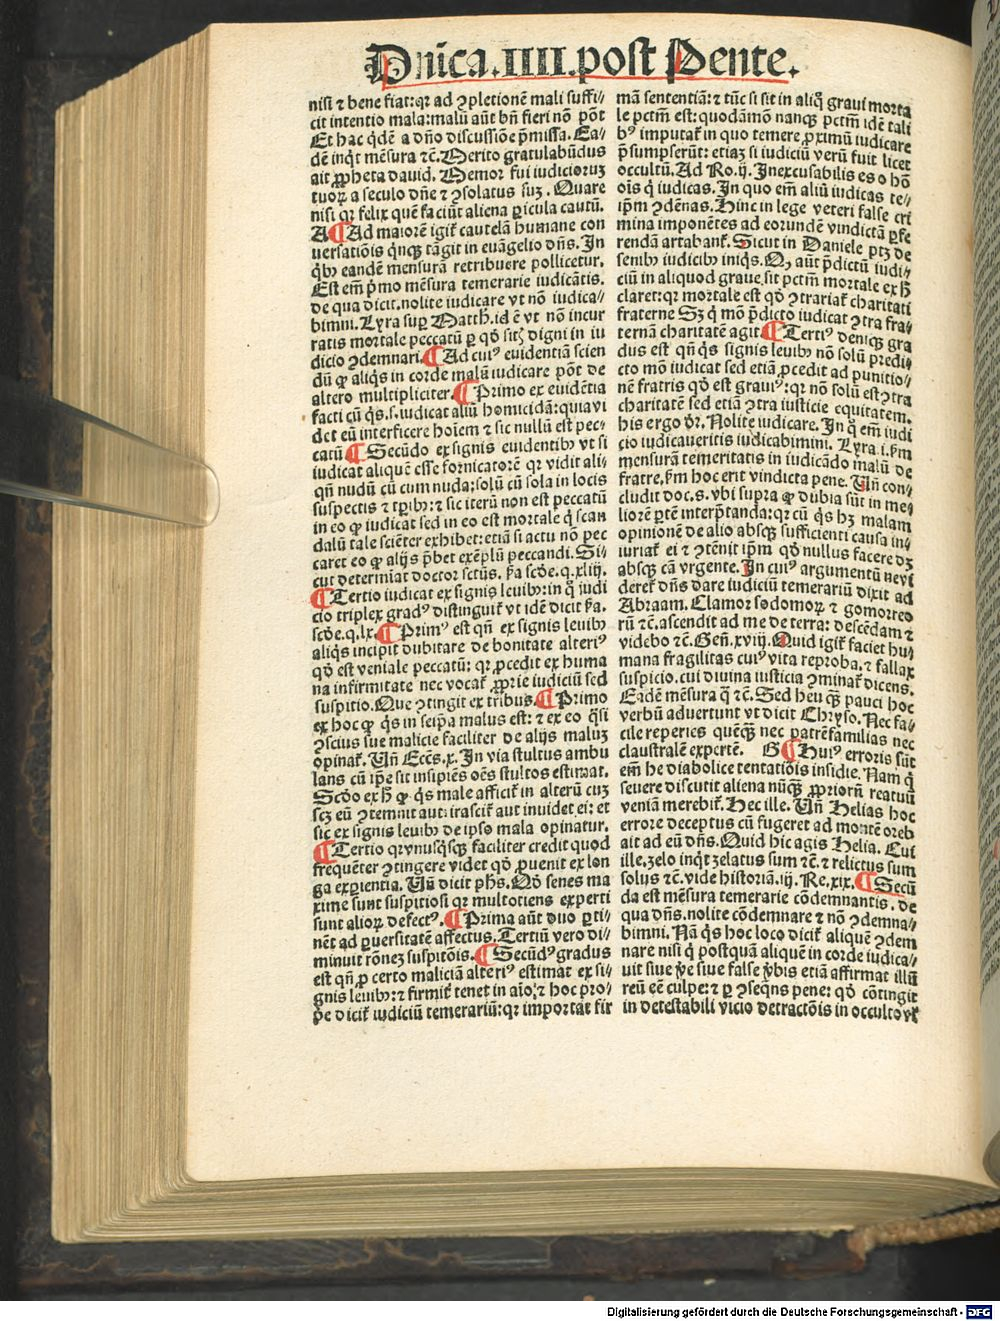 Dñica.IIII.post Pente.
nisi ⁊ bene fiat: qꝛ ad ꝯpletionē mali suffi⸗
cit intentio mala: malū aūt bñ fieri nō põt
Et hac q̇dē a dño discussiõe p̄missa. Ea⸗
dē inq̇t mēsura ⁊c̄. Merito gratulabūdus
ait ꝓpheta dauid. Memor fui iudicioꝝ
tuoꝝ a seculo dñe ⁊ ꝯsolatus suꝫ. Quare
nisi qꝛ felix quē faciūt aliena ꝑicula cautū.
A ¶ Ad maiorē igit᷑ cautelā humane con
uersatiōis q̇ncꝙ tāgit in euāgelio dñs. In
q̇bꝰ eandē mensurā retribuere pollicetur.
Est em̄ p̄mo mēsura temerarie iudicātis.
de qua dicit. nolite iudicare vt nō iudica⸗
bimni. Lyra suꝑ Matth. id ē vt nō incur
ratis mortale peccatū ꝑ qđ sitꝭ digni in iu
dicio ꝯdemnari. ¶ Ad cuiꝰ euidentiā scien
dū ꝙ aliq̇s in corde malū iudicare põt de
altero multipliciter. ¶ Primo ex euidētia
facti cū q̇s.s. iudicat aliū homicidā: quia vi
det eū interficere hoīem ⁊ sic nullū est pec⸗
catū ¶ Secūdo ex signis euidentibꝰ vt si
iudicat aliquē esse fornicatorē qꝛ vidit ali⸗
qñ nudū cū cum nuda: solū cū sola in locis
suspectis ⁊ tꝑibꝰ: ⁊ sic iterū non est peccatū
in eo ꝙ iudicat sed in eo est mortale q̇ scan
dalū tale sciēter exhibet: etiā si actu nō pec
caret eo ꝙ alijs p̄bet exēplū peccandi. Si⸗
cut determīat doctor sctūs. p̄a scđe. q. xliij.
¶ Tertio iudicat ex signis leuibꝰ: in q̇ iudi
cio triplex gradꝰ distinguit᷑ vt idē dicit p̄a.
scđe. q. lx. ¶ Primꝰ est qñ ex signis leuibꝰ
aliq̇s incipit dubitare de bonitate alteriꝰ
qđ est veniale peccatū: qꝛ ꝓcedit ex huma
na infirmitate nec vocat᷑ ꝓprie iudiciū sed
suspitio. Que ꝯtingit ex tribus. ¶ Primo
ex hoc ꝙ q̇s in seipā malus est: ⁊ ex eo q̇si
ꝯscius sue malicie faciliter de alijs maluꝫ
opinat᷑. Uñ Eccs̄. x. In via stultus ambu
lans cū ip̄e sit insipiēs oēs stultos estimat.
Scđo ex h̄ ꝙ q̇s male afficit᷑ in alterū cuꝫ
scꝫ eū ꝯtemnit aut irascit᷑ aut inuidet ei: et
sic ex signis leuibꝰ de ipso mala opinatur.
¶ Tertio qꝛ vnusq̇sꝙ faciliter credit quod
frequēter ꝯtingere videt qđ ꝓuenit ex lon
ga exꝑientia. Uñ dicit ph̄s. Qđ senes ma
xime sunt suspitiosi qꝛ multotiens experti
sunt alioꝝ defectꝰ. ¶ Prima aūt duo ꝑti⸗
nēt ad ꝑuersitatē affectus. Tertiū vero di⸗
minuit rōneꝫ suspitōis. ¶ Secūdꝰ gradus
est qñ ꝓ certo maliciā alteriꝰ estimat ex si⸗
gnis leuibꝰ: ⁊ firmit᷑ tenet in aīo, ⁊ hoc pro⸗
p̄e dicit᷑ iudiciū temerariū: qꝛ importat fir
mā sententiā: ⁊ tūc si sit in aliq̇ graui morta
le pctm̄ est: quodāmō nanꝙ pctm̄ idē tali
bꝰ imputat᷑ in quo temere ꝓximū iudicare
p̄sumpserūt: etiaꝫ si iudiciū verū fuit licet
occultū. Ad Ro. ij. Inexcusabilis es o hō
oīs q̇ iudicas. In quo em̄ aliū iudicas te⸗
ip̄m ꝯdēnas. Hinc in lege veteri false cri
mina imponētes ad eorundē vindictā ꝑfe
rendā artabant᷑. Sicut in Daniele ptꝫ de
senibꝰ iudicibꝰ iniq̇s. Qꝫ aūt p̄dictū iudi⸗
ciū in aliquod graue sit pctm̄ mortale ex h̄
claret: qꝛ mortale est qđ ꝯtrariat᷑ charitati
fraterne Sꝫ q̇ mō p̄dicto iudicat ꝯtra fra⸗
ternā charitatē agit. ¶ Tertiꝰ deniꝙ gra
dus est qñ q̇s signis leuibꝰ nō solū predi⸗
cto mō iudicat sed etiā ꝓcedit ad punitio⸗
nē fratris qđ est grauiꝰ: qꝛ nō solū est ꝯtra
charitatē sed etiā ꝯtra iusticie equitatem.
his ergo dr̄. Nolite iudicare. In q̇ em̄ iudi
cio iudicaueritis iudicabimini. Lyra. i. ẜm
mensurā temeritatis in iudicādo malū de
fratre, ẜm hoc erit vindicta pene. Uñ con⸗
cludit doc. s. vbi supra ꝙ dubia sūt in me⸗
liorē ꝑtē interp̄tanda: qꝛ cū q̇s hꝫ malam
opinionē de alio absꝙ sufficienti causa in⸗
iuriat᷑ ei ⁊ ꝯtēnit ip̄m qđ nullus facere dꝫ
absꝙ cā vrgente. In cuiꝰ argumentū nevi
deret᷑ dñs dare iudiciū temerariū dixit ad
Abraam. Clamor sodomoꝝ ⁊ gomorreo
rū ⁊c̄. ascendit ad me de terra: descēdam ⁊
videbo ⁊c̄. Geñ. xviij. Quid igit᷑ faciet hu⸗
mana fragilitas cuiꝰ vita reproba, ⁊ fallax
suspicio. cui diuina iusticia ꝯminat᷑ dicens.
Eadē mēsura q̇ ⁊c̄. Sed heu ꝙ̄ pauci hoc
verbū aduertunt vt dicit Chryso. Nec fa⸗
cile reperies quēꝙ̄ nec patrēfamilias nec
claustralē expertē. B ¶ Huiꝰ erroris sūt
em̄ he diabolice tentatiōis insidie. Nam q̇
seuere discutit aliena nūꝙ̄ ꝓpriorū reatuū
veniā merebit᷑. Hec ille. Uñ Helias hoc
errore deceptus cū fugeret ad montē oreb
ait ad eū dñs. Quid hic agis Helia. Cui
ille. zelo inq̇t zelatus sum ⁊c̄. ⁊ relictus sum
solus ⁊c̄. vide historiā. iij. Re. xix. ¶ Secū
da est mēsura temerarie cōdemnantis. de
qua dñs. nolite cōdemnare ⁊ nō ꝯdemna⸗
bimni. Nā q̇s hoc loco dicit᷑ aliquē ꝯdem
nare nisi q̇ postquā aliquē in corde iudica⸗
uit siue v̄e siue false v̄bis etiā affirmat illū
reū eē culpe: ⁊ ꝑ ꝯseq̄ns pene: qđ cōtingit
in detestabili vicio detractōis in occulto vt᷑
Digitalisierung gefördert durch die Deutsche Forschungsgemeinschaft - DFG